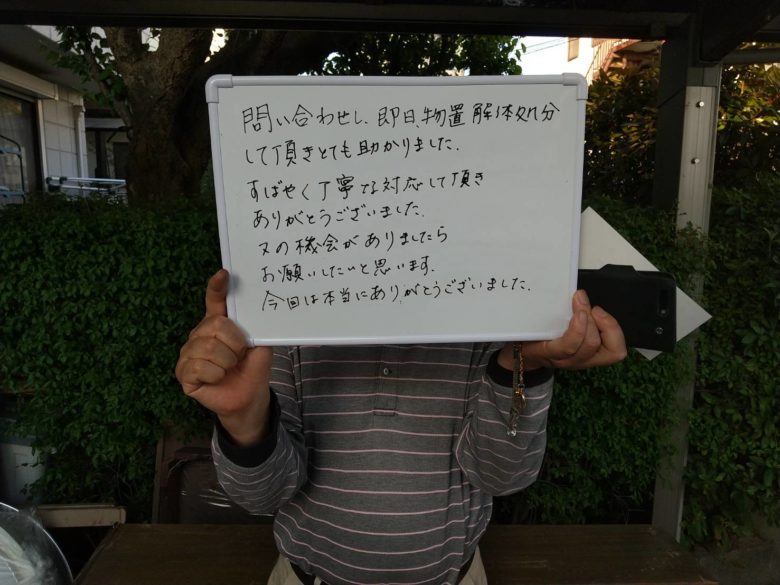 問い合わせし、即日、物置解体処分
して頂きとても助かりました。
すばやく丁寧な対応して頂き
ありがとうございました。
又の機会がありましたら
お願いしたいと思います。
今回は本当にありがとうございました。